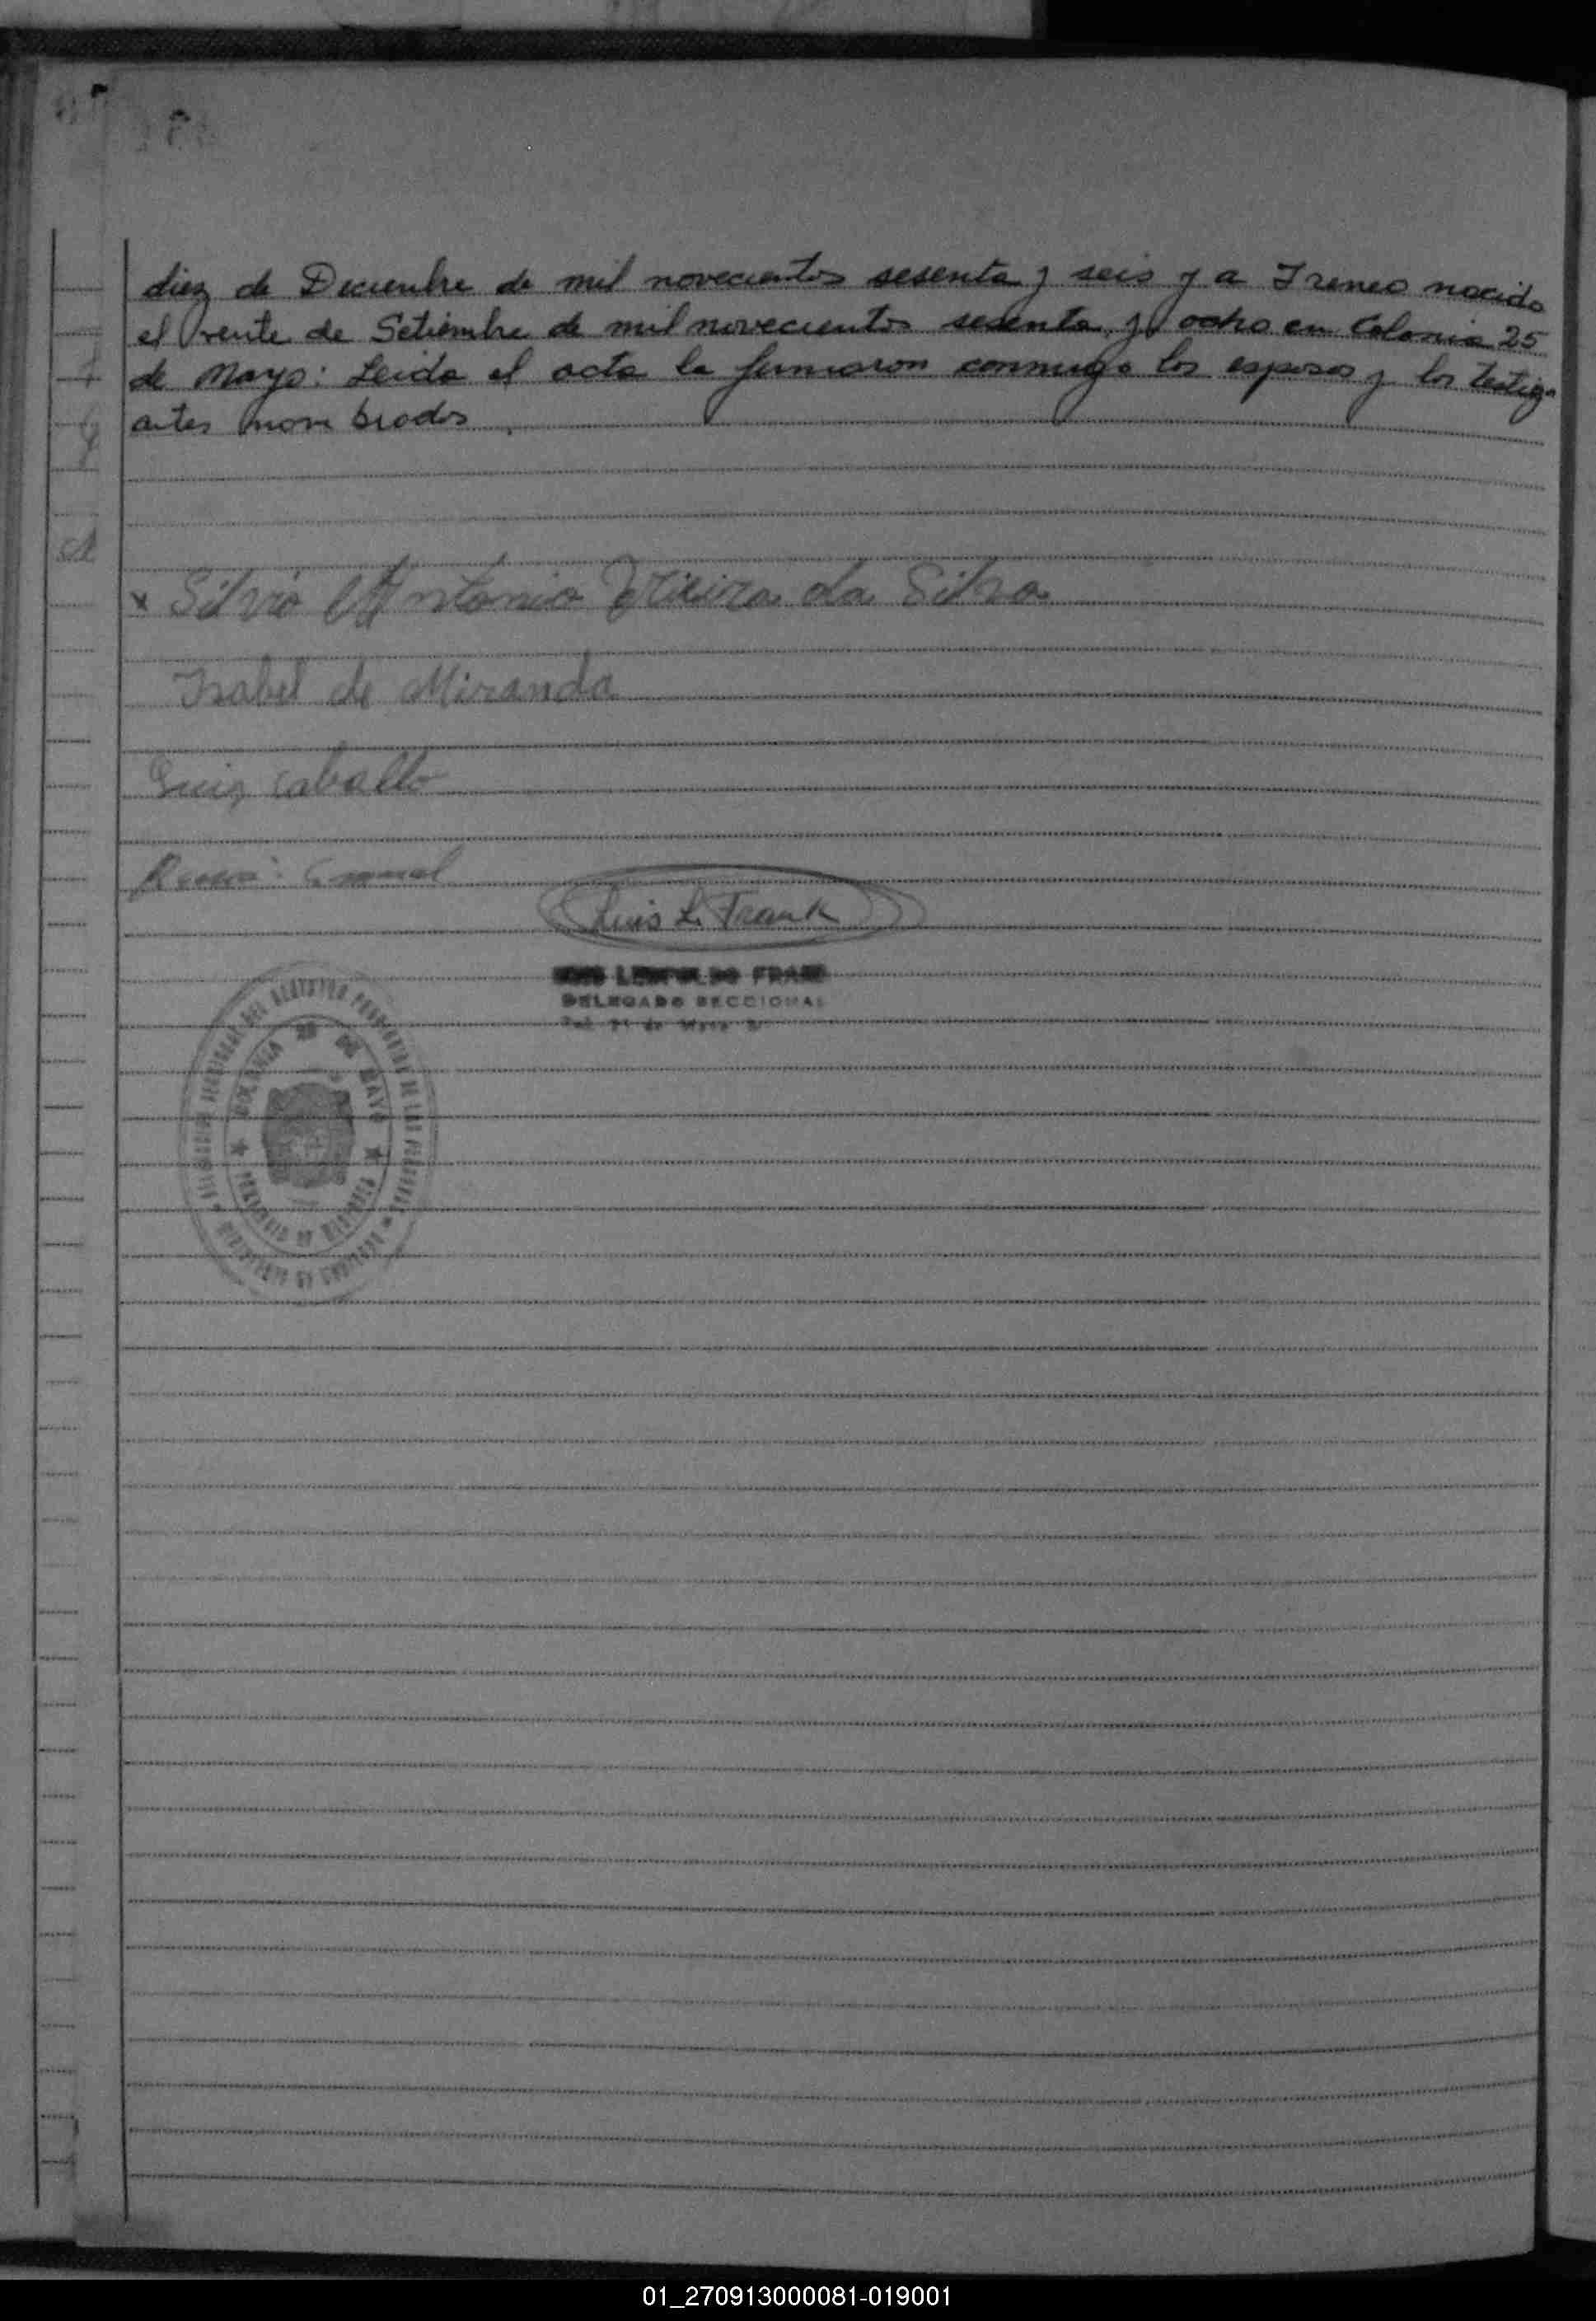 diez de Diciembre de mil novecientos sesenta y seis y a Ireneo nacido
el veinte de Setiembre de mil novecientos sesenta y ocho en Colonia 25
de Mayo: Leida el acta la firmaron conmigo los esposos y los testigos
antes nombrados
x Silvio Antonio Vieira da Silva
Isabel de Miranda
Luiz Caballo
Luis L. Frank
LUIS LEOPOLDO FRANK
DELEGADO SECCIONAL
COLONIA 25 DE MAYO
PROVINCIA DE MISIONES
DEL REGISTRO PROVINCIAL DE LAS PERSONAS
MINISTERIO DE GOBIERNO
01_270913000081-019001